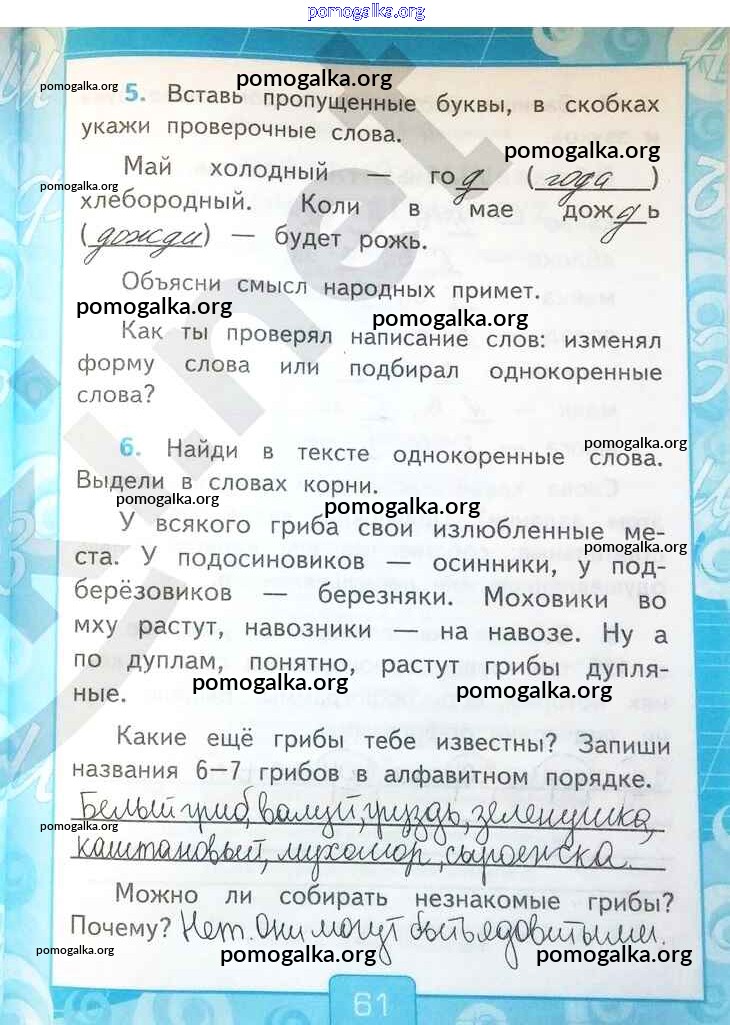 pomogalka.org
pomogalka.org
pomogalka.org
5. Вставь пропущенные буквы, в скобках
укажи проверочные слова.
pomogalka.org
Май холодный — год (года)
pomogalka.org
хлебородный. Коли в мае дождь
(дожди) — будет рожь.
Объясни смысл народных примет.
pomogalka.org
pomogalka.org
Как ты проверял написание слов: изменял
форму слова или подбирал однокоренные
слова?
pomogalka.org
6. Найди в тексте однокоренные слова.
Выдели в словах корни.
pomogalka.org
pomogalka.org
У всякого гриба свои излюбленные ме-
ста. У подосиновиков — осинники, у под-
pomogalka.org
берёзовиков — березняки. Моховики во
мху растут, навозники — на навозе. Ну а
по дуплам, понятно, растут грибы дупля-
ные.
pomogalka.org
pomogalka.org
Какие ещё грибы тебе известны? Запиши
названия 6—7 грибов в алфавитном порядке.
Белый гриб, валуй, груздь, зеленушка,
pomogalka.org
каштановый, мухомор, сыроежка.
Можно ли собирать незнакомые грибы?
Почему? Нет. Они могут быть ядовитыми.
pomogalka.org
pomogalka.org
pomogalka.org
61